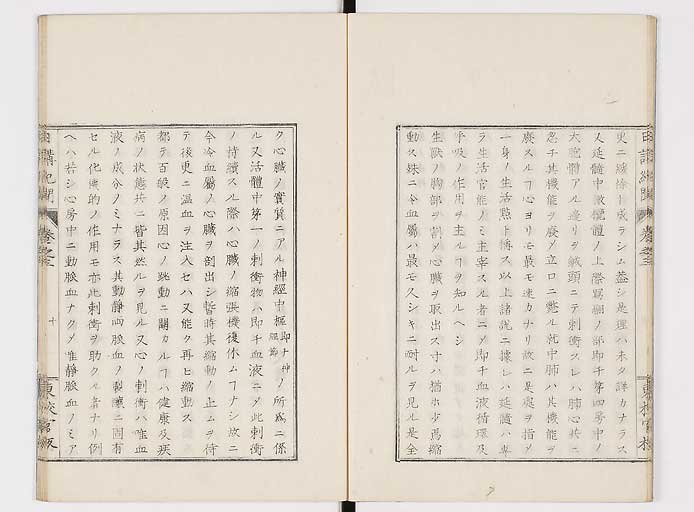 更ニ痲痺ト成ラシム蓋シ是理ハ未タ詳カナラス
又延髓中菱橙體ノ上際寫翮ノ部即チ第四房中ノ
大脘體アル邊リヲ鍼頭ニテ刺衝スレハ肺心共ニ
忽チ其機能ヲ廢メ立ロニ斃ル就中肺ハ其機能ヲ
廢スルヿ心ヨリモ最モ速カナリ故ニ是處ヲ指メ
一身ノ生活㸃ト傳ス以上諸說ニ據レハ延髓ハ專
ラ生活官能ノミ主宰スル者ニメ即チ血液循環及
呼吸ノ作用ヲ主ルヿヲ知ルヘシ
生獸ノ胸部ヲ割メ心臟ヲ取出ス寸ハ猶ホ少焉縮
動ス殊ニ冷血屬ハ最モ久シキニ耐ルヲ見ル是全
ク心臟ノ實質ニアル神經中樞即ナ神經節ノ所爲ニ係
ル又活體中第一ノ刺衝物ハ即チ血液ニメ此刺衝
ノ持續スル際ハ心臟ノ縮張機復休ムヿナシ故ニ
今冷血屬ノ心臟ヲ剖出シ暫時其縮動ノ止ムヲ俟
テ後更ニ温血ヲ注入セハ又能ク再ヒ縮動ス
都テ百般ノ原因心ノ跳動ニ關カルヿハ健康及疾
病ノ狀態共ニ皆其然ルヲ見ル又心ノ刺衝ハ唯血
液ノ成分ノミナラス其動靜兩脈血ノ製釀ニ固有
セル化機的ノ作用モ亦此刺衝ヲ助クル者ナリ例
ヘハ若シ心房中ニ動脈血ナクメ唯靜脈血ノミア
日講紀聞
卷之三
十
東校官版